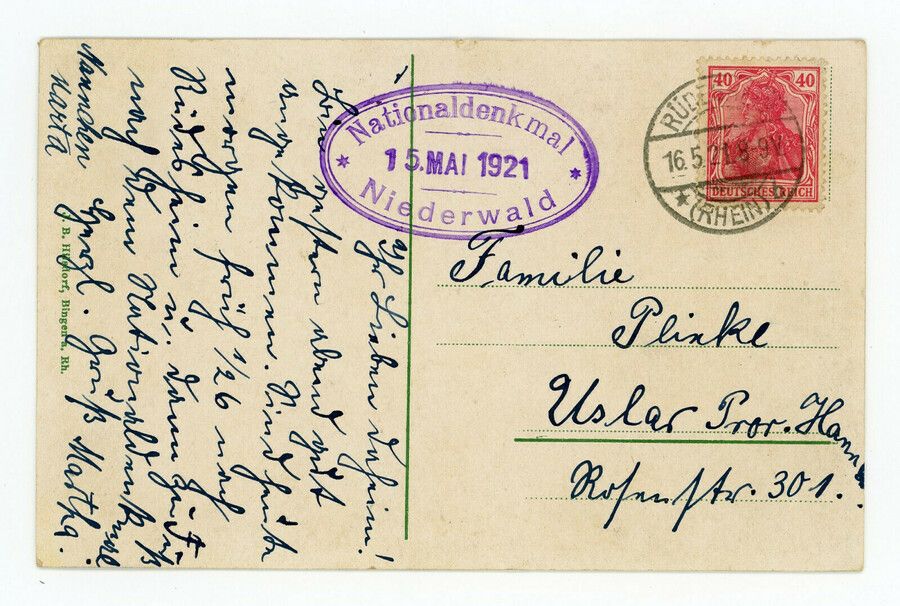 Ihr Lieben daheim!
Sein gestern abend gut
angekommen. Sind heute
morgen früh 1/26 nach
Rüdesheim u. dann zu Fuß
nach dem Nationaldenkmal
Herzl. Gruß Martha.
Nationaldenkmal
15. MAI 1921
Niederwald
40 40
DEUTSCHES REICH
RÜDE
16.5.21.8-9V.
(RHEIN)
Familie
Plinke
Uslar Prov. Hann
Rosenstr. 301.
B. Hilsdorf, Bingen a. Rh.